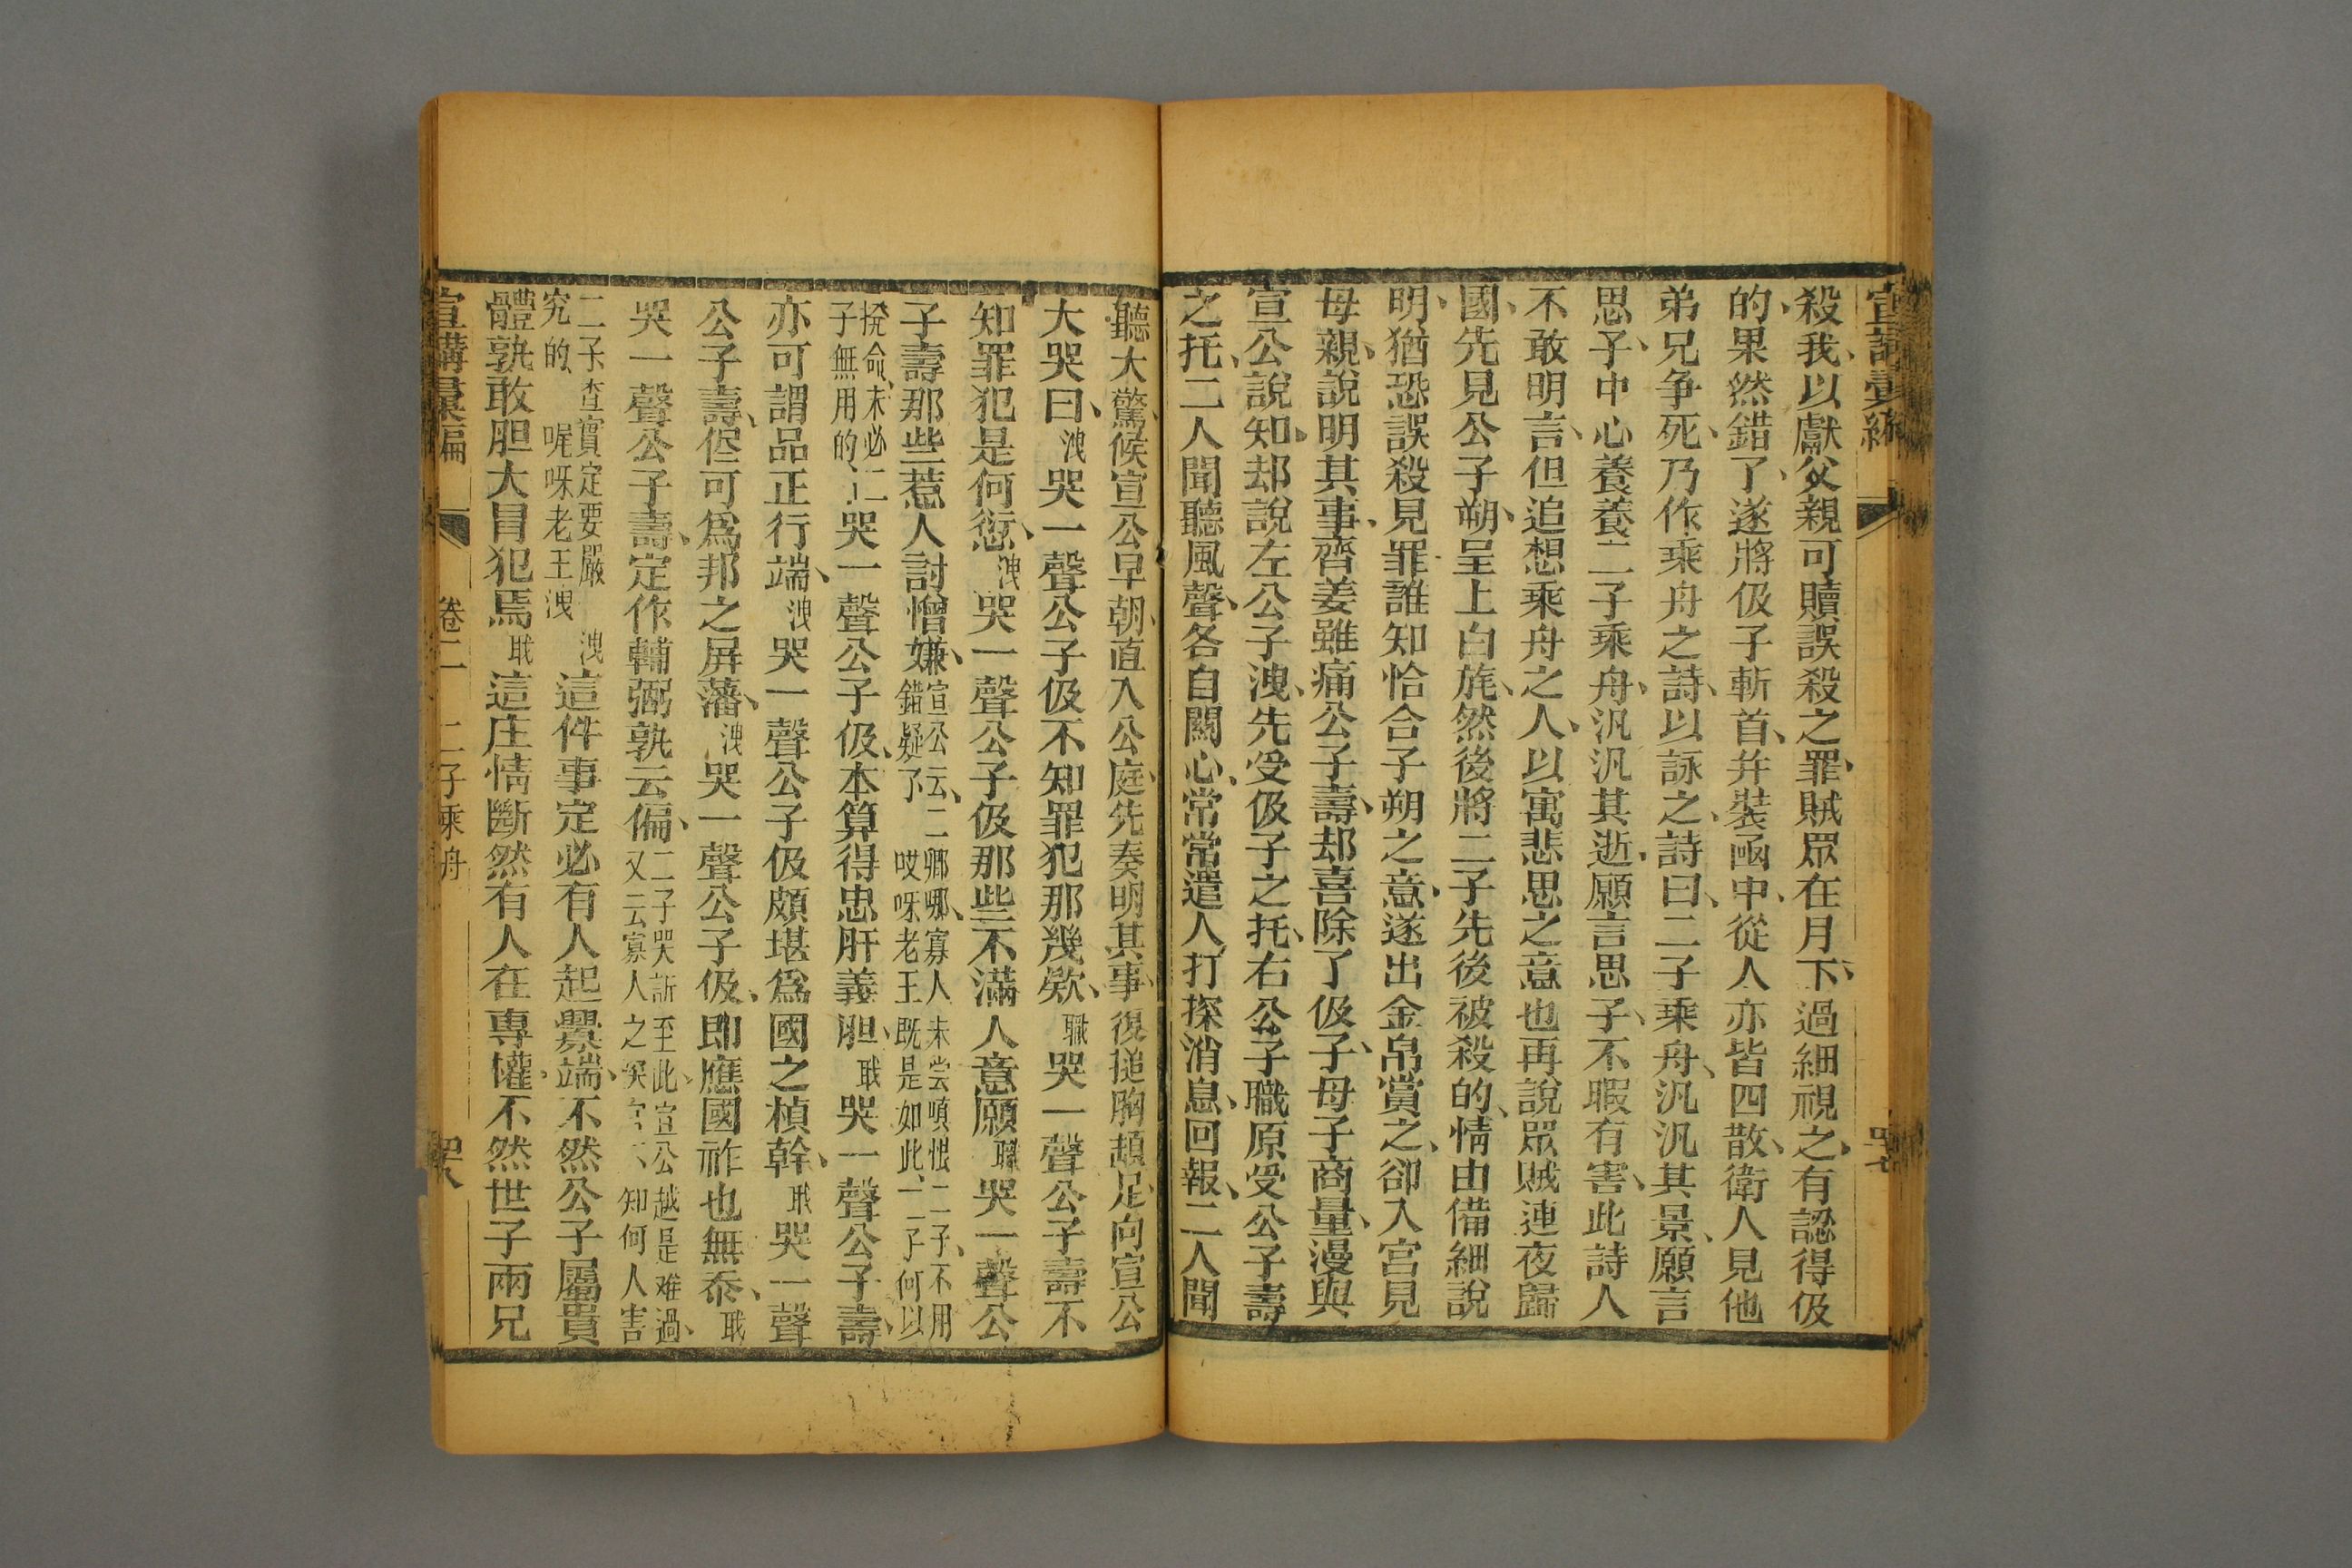 宣講彙編
四十七
殺我、以獻父親可贖誤殺之罪、賊眾在月下、過細視之、有認得伋
的、果然錯了、遂將伋子斬首、并裝函中、從人亦皆四散、衛人見他
弟兄争死、乃作乘舟之詩、以詠之、詩曰、二子乘舟、汎汎其景、願言
思子、中心養養、二子乘舟、汎汎其逝、願言思子、不暇有害、此詩人
不敢明言、但追想乘舟之人、以寓悲思之意也、再說眾賊連夜歸
國、先見公子朔、呈上白旄、然後將二子先後被殺的、情由備細說
明、猶恐誤殺見罪、誰知恰合子朔之意、遂出金帛賞之、卻入宮見
母親、說明其事、齊姜雖痛公子壽、却喜除了伋子、母子商量、漫與
宣公說知、却說左公子洩、先受伋子之托、右公子職原受公子壽
之托、二人聞聽風聲、各自關心、常常遣人打探消息、回報、二人聞
聽大驚、候宣公早朝、直入公庭、先奏明其事、後搥胸頓足、向宣公
大哭曰、洩哭一聲公子伋不知罪犯那幾欵、職哭一聲公子壽不
知罪犯是何愆、洩哭一聲公子伋那些不滿人意願、職哭一聲公
子壽那些惹人討憎嫌、宣公云、二卿哪、寡人未嘗嗔恨二子、不用
錯疑了 哎呀老王既是如此、二子何以
挩命、未必二
子無用的、
哭一聲公子伋、本算得忠肝義胆、職哭一聲公子壽、
亦可謂品正行端、洩哭一聲公子伋頗堪爲國之楨幹、职哭一聲
公子壽、侭可爲邦之屏藩、洩哭一聲公子伋、即應國祚也無忝、职
哭一聲公子壽、定作輔弼孰云偏、二子哭訴至此、宣公越是难過、
又云寡人之 知何人害
二子、查實定要嚴
究的、 喔呀老王洩
洩這件事定必有人起釁端、不然公子屬貴
體孰敢胆大冒犯焉职這庄情斷然有人在專權、不然世子兩兄
宣講彙編 卷二 二子乘舟 四十八